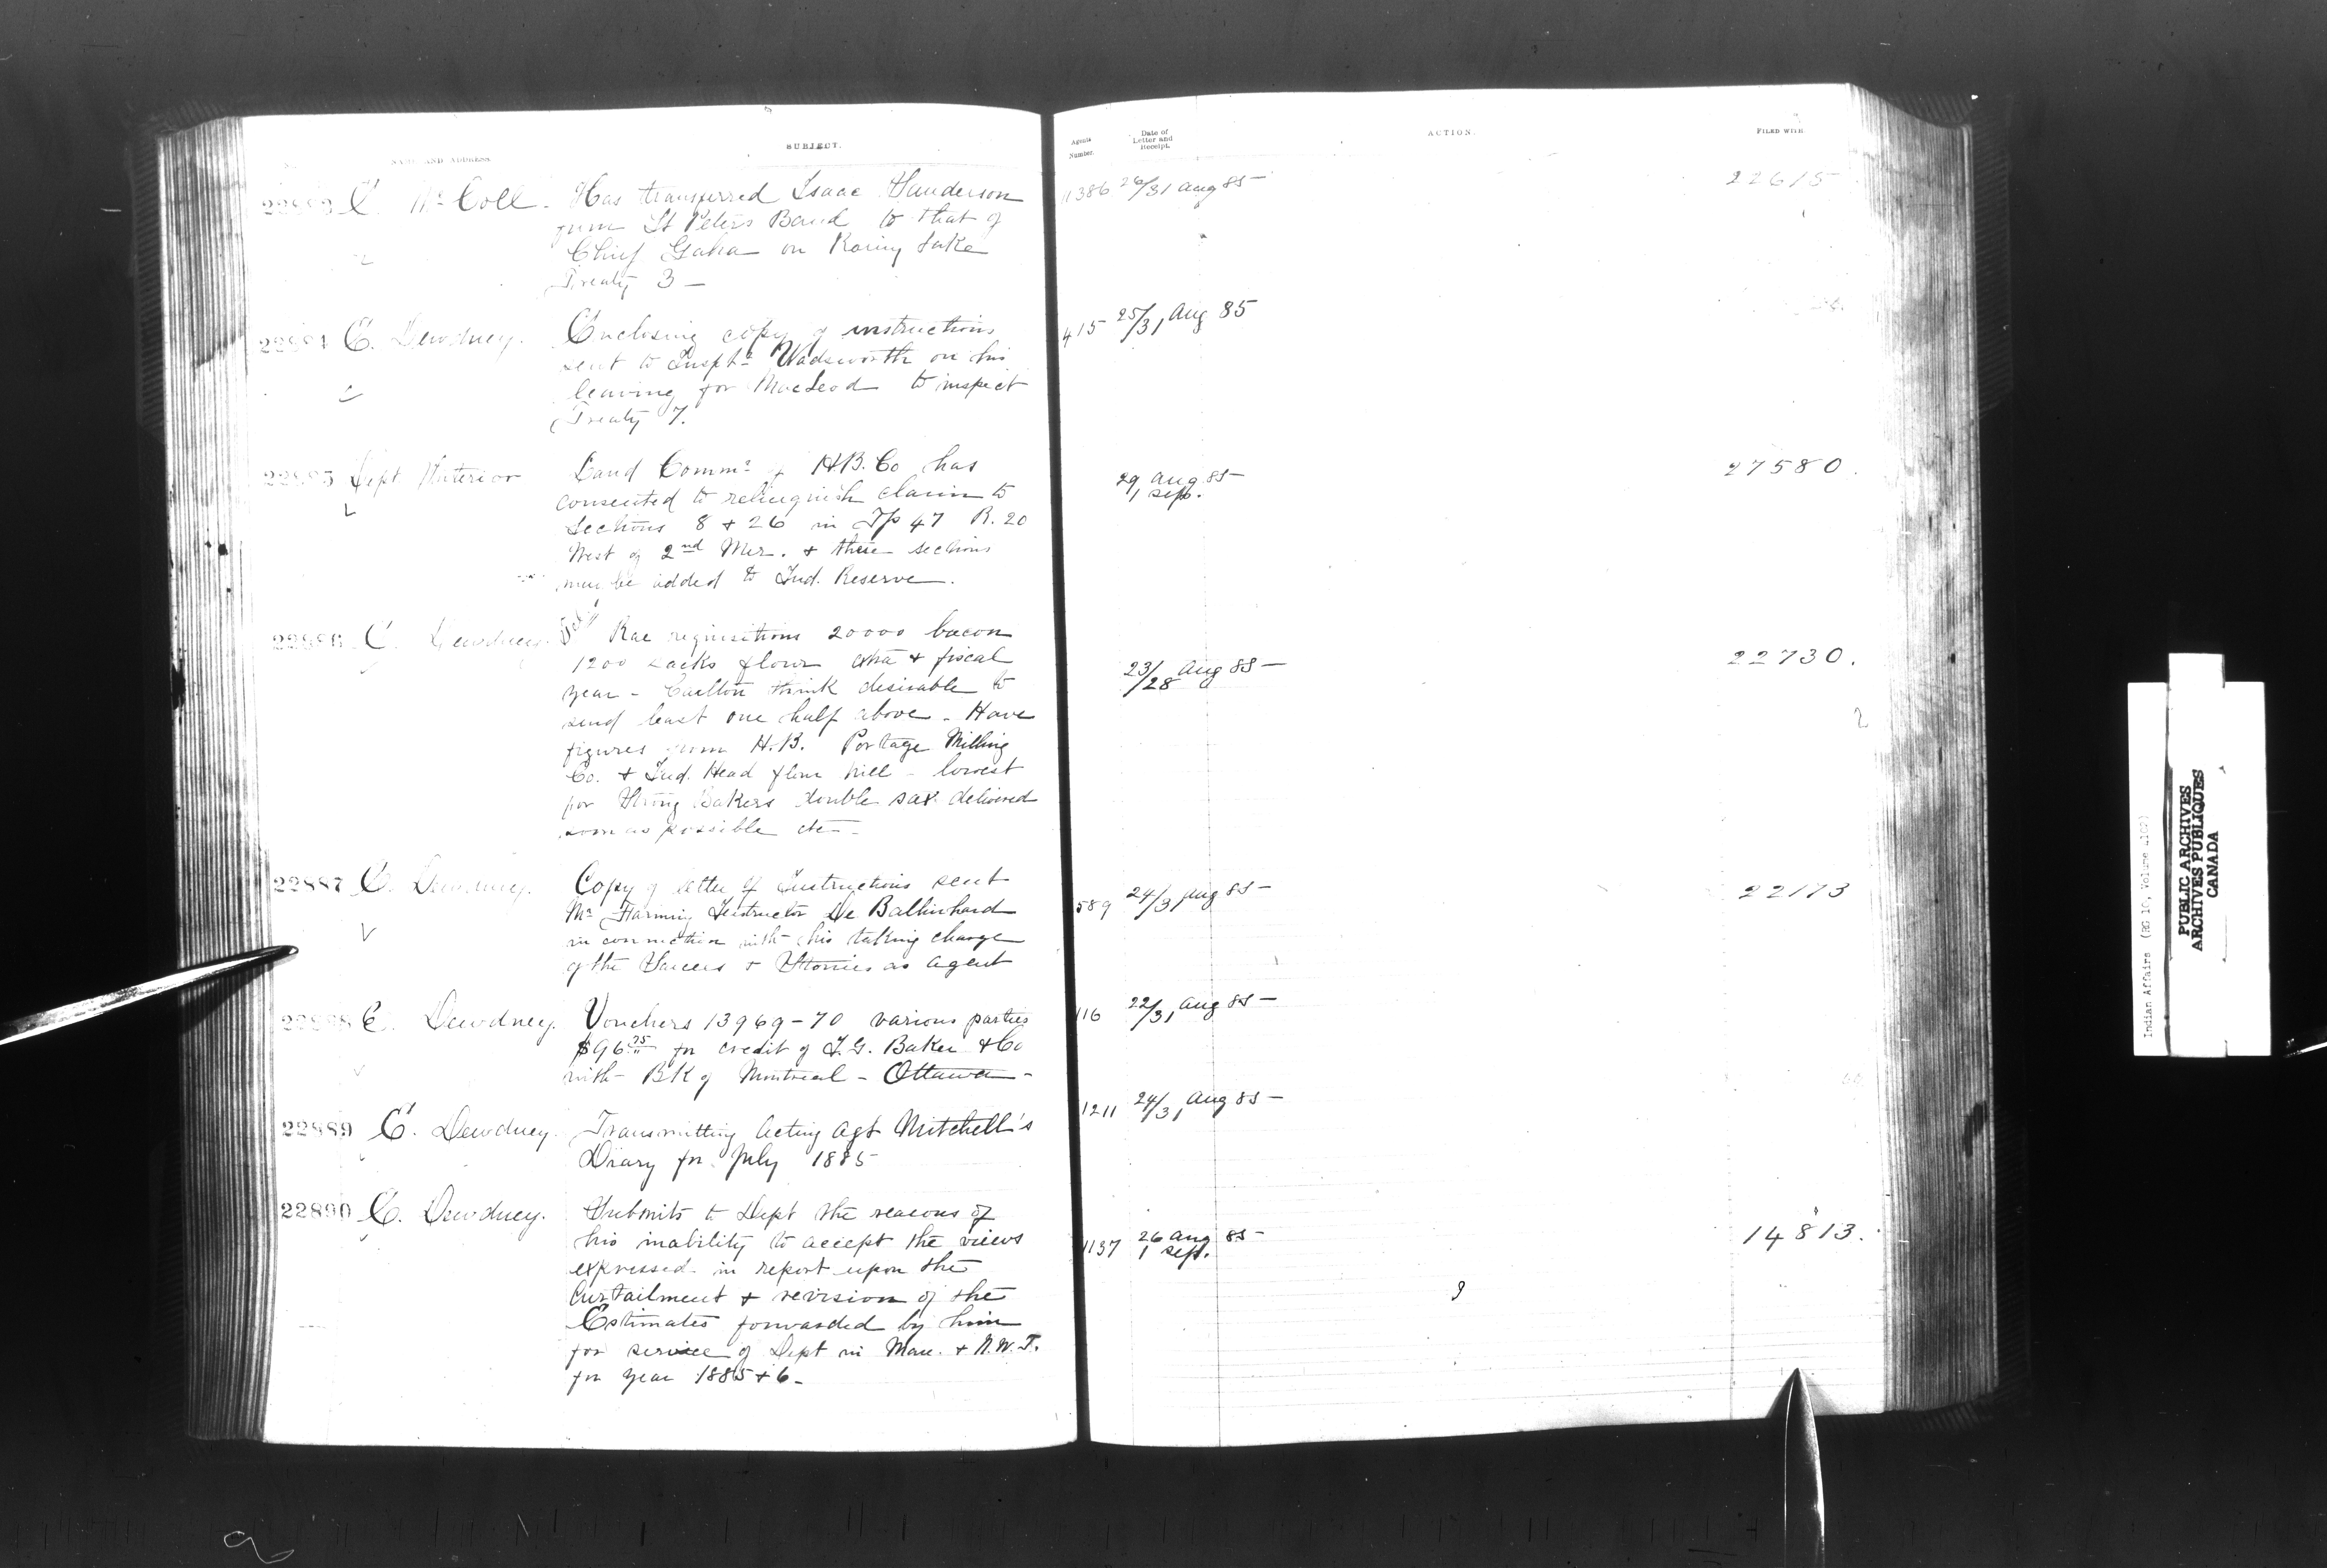 NAME AND ADDRESS
SUBJECT.
22883 E. McColl. Has transferred Isaac Henderson
from St Peters Band to that of
Chief on Rainy Lake
Treaty 3 —
22884 E. Dewdney. Enclosing copy of instructions
sent to Wadsworth on his
leaving for MacLeod to inspect
Treaty 7.
22885 Dept Interior Land Commr of H.B. Co has
consented to relinquish claim to
Sections 8 + 26 in Tp 47 R. 20
West of 2nd Mer. + these sections
may be added to Ind. Reserve.
22886 E. Dewdney. Rae requisitions 20000 bacon
1200 sacks flour + fiscal
year - Carlton think desirable to
send least one half above - Have
figures from H.B. Portage Milling
Co. + Ind. Head flour mill - lowest
for Strong Bakers double sax delivered
soon as possible etc —
22887 E. Dewdney. Copy of letter of Instructions sent
Mr Farming Instructor De Balinhard
in connection with his taking charge
of the Sarcees + Stonies as Agent
22888 E. Dewdney. Vouchers 13969-70 various parties
$96 75 for credit of I.G. Baker + Co
with Bk of Montreal - Ottawa -
22889 E. Dewdney. Transmitting Acting Agt Mitchell's
Diary for July 1885
22890 E. Dewdney. Submits to Dept the reasons of
his inability to accept the views
expressed in report upon the
Curtailment + revision of the
Estimates forwarded by him
for service of Dept in Man. + N.W.T.
for year 1885 + 6 -
Agents
Number.
Date of
Letter and
Receipt.
ACTION.
FILED WITH
11386 26/31 Aug 85 — 22615
415 25/31 Aug 85
29 Aug 85 — 27580.
1 Sept.
23/28 Aug 85 — 22730.
589 24/31 Aug 85 — 22173
116 22/31 Aug 85 —
1211 24/31 Aug 85 —
1137 26 Aug 85 — 14813.
1 Sept.
Indian Affairs (RG 10, Volume
PUBLIC ARCHIVES
ARCHIVES PUBLIQUES
CANADA